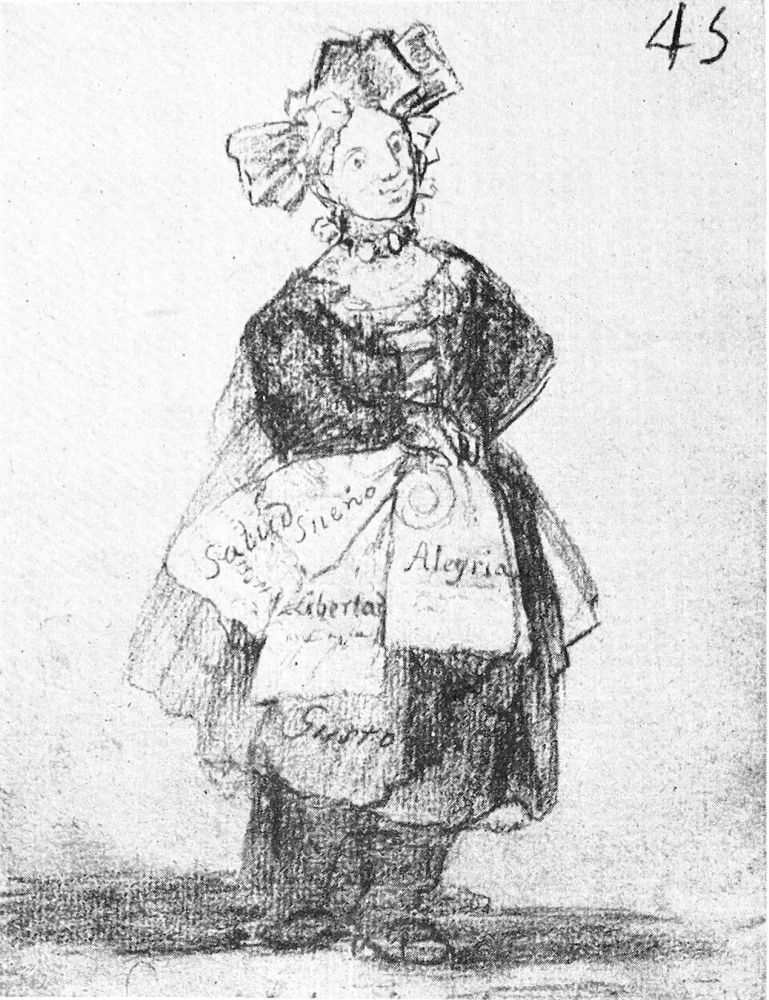 45
Salud
Sueño
Alegria
Libertad
Gusto